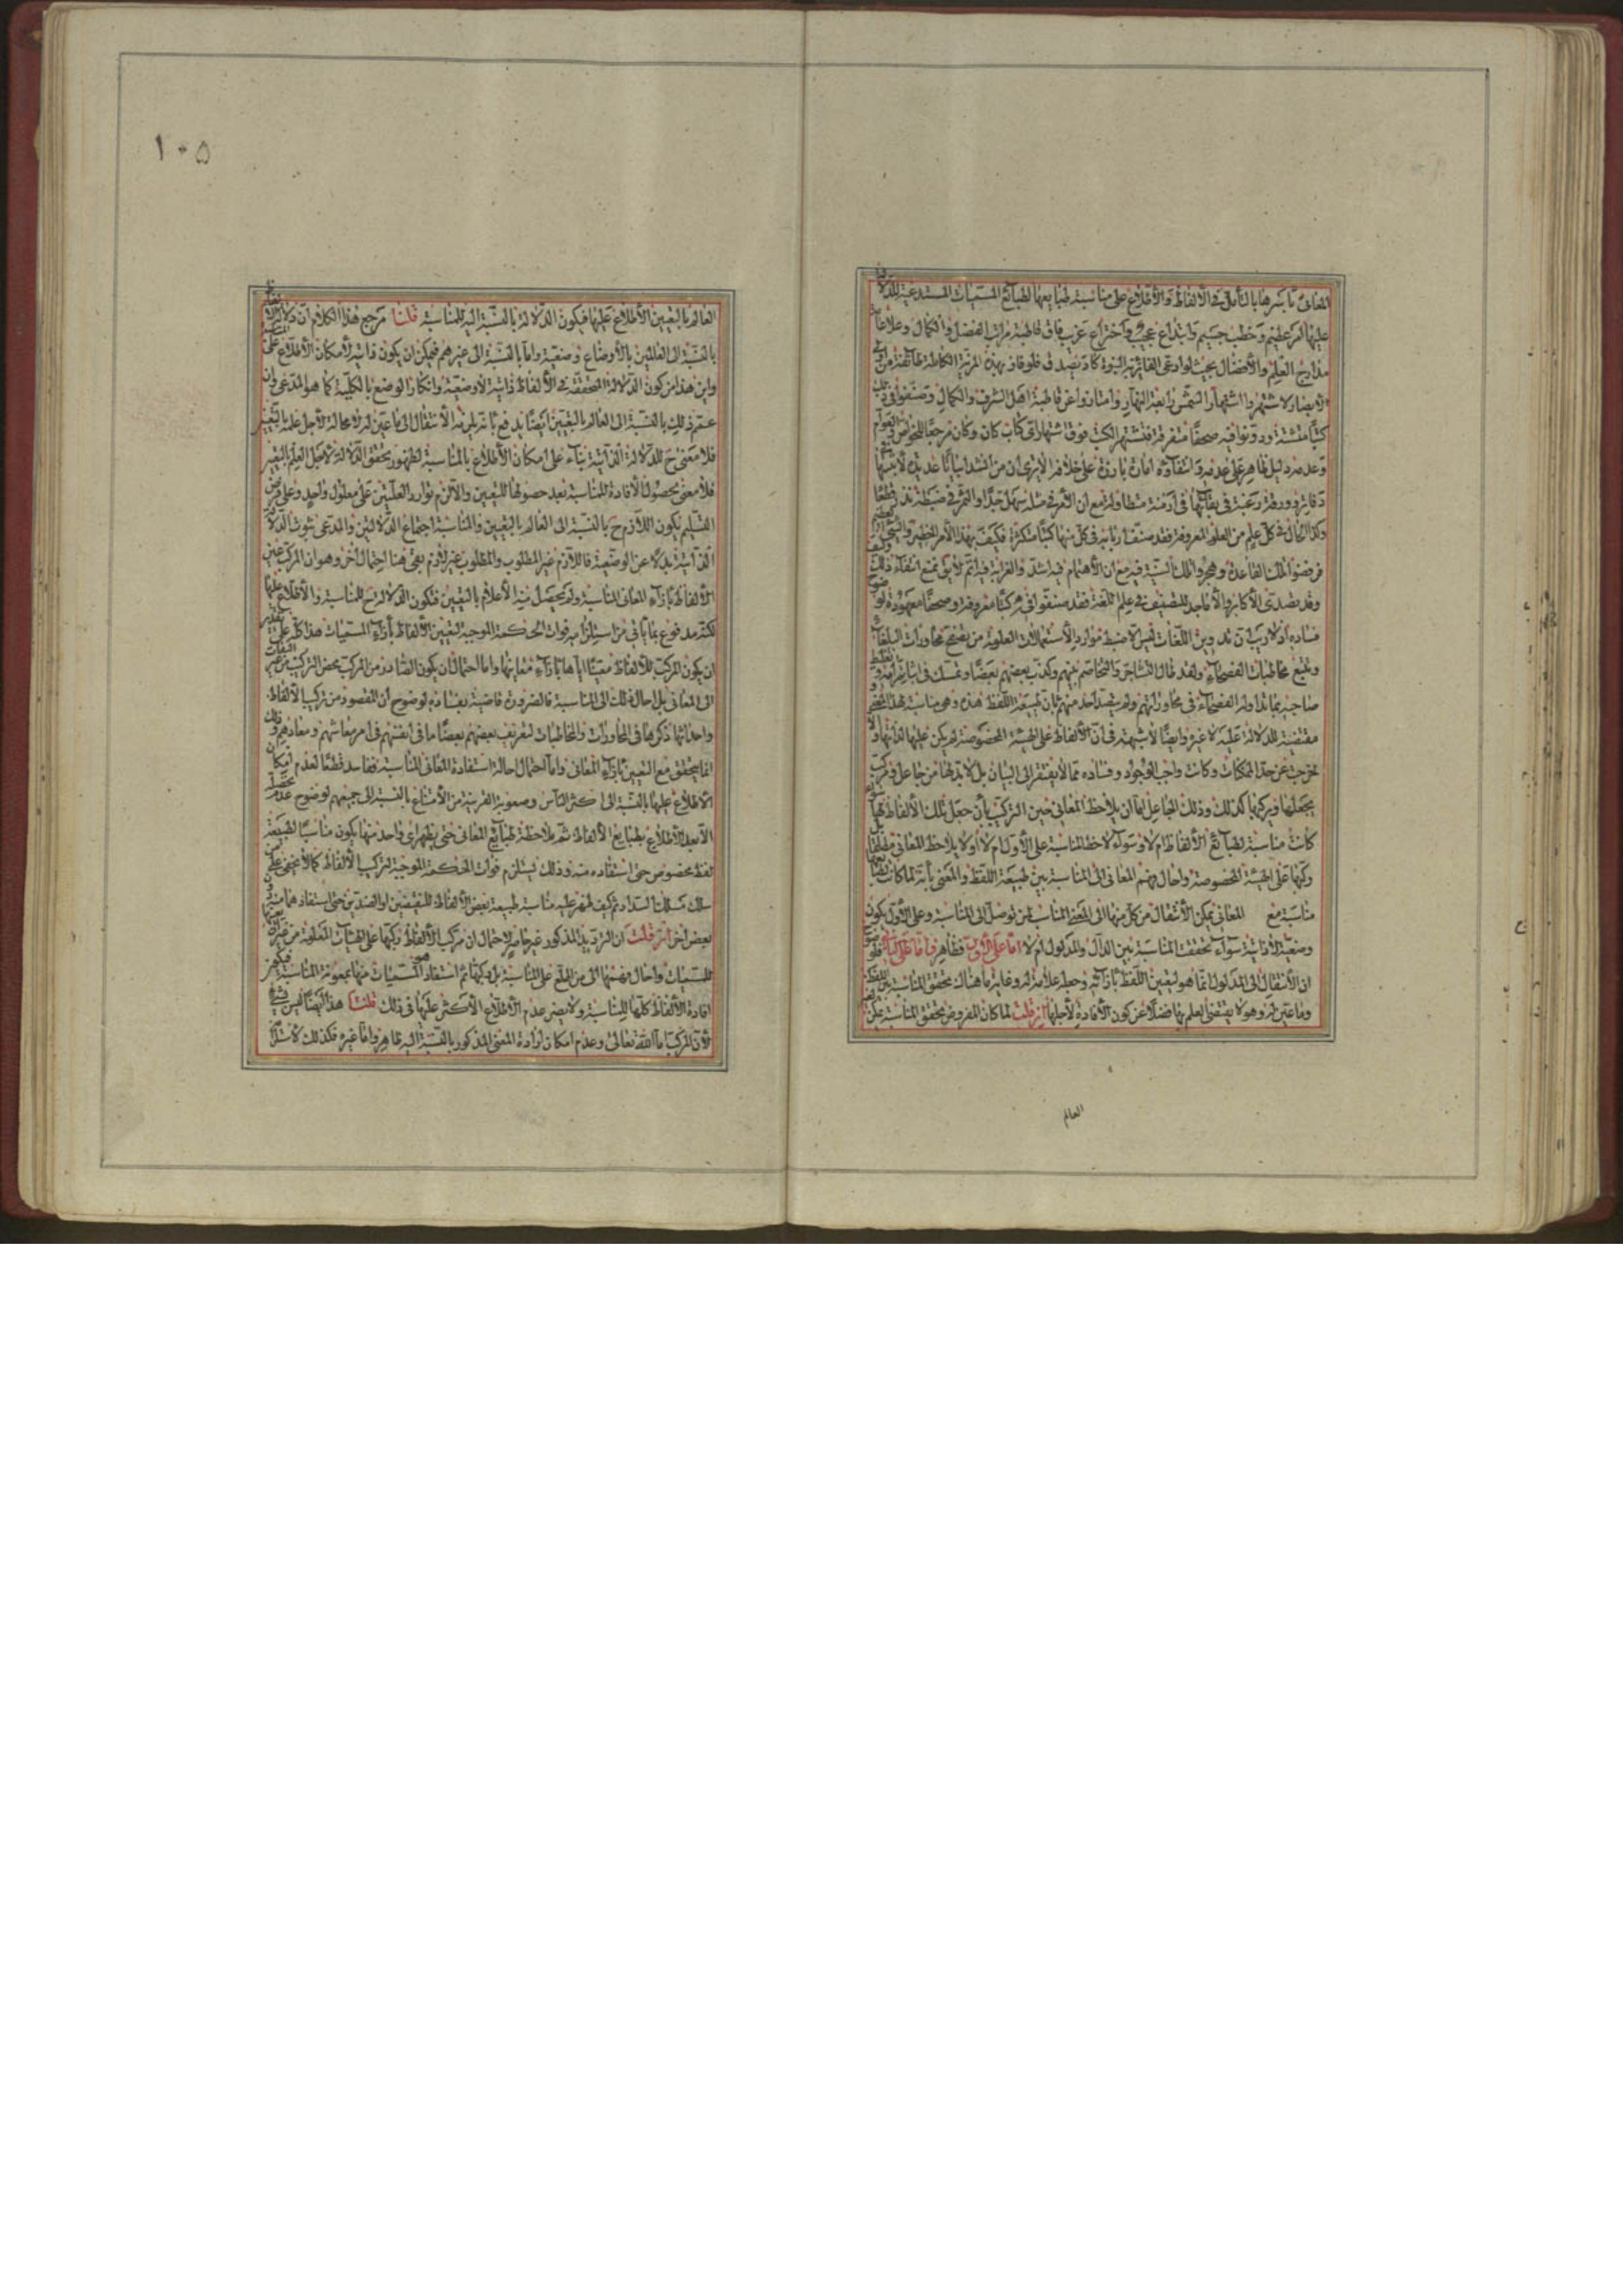 المعانى باسرها بالتأمل فى الألفاظ والأطلاع على مناسبة طبايعها لطبائع المسميات المستدعية للدلالة
عليها امر عظيم وخطب جسيم وابتداع عجيب واختراع غريب فاق قاطبة مراتب الفضل والكمال وعلا
مدارج العلم والأفضال بحيث لو ادعى الفائز به النبوة كاد يصدق فلو فاز بهذه المرتبة الكاملة طائفة من اولى
الابصار لاشتهر واشتهار الشمس رابعة النهار وامتازوا عن قاطبة اهل الشرف والكمال وصنفوا فى ذلك
كتبا متشتة ودونوا فيه صحفا متفرقة فتشتهر الكتب فوق اشتهار اى كتاب كان وكان مرجعا للخواص
وعدمه دليل ظاهر على عدمه وانتفاؤه امارة بارزة على خلافه الا ترى ان من انشد ابياتا عديدة
دفاتره ورغبة فى بقائها فى ازمنة متطاولة مع ان الأمر فى مثله سهل جدا
وكذا الحال فى كل علم من العلوم المعروفة فقد صنف اربابه فى كل منها كتبا متكثرة فكيف بهذا الأمر الخطير
فرفضوا تلك القاعدة وهجروا تلك السنة فيه مع ان الأهتمام فيه اشد والغرابة فيه اتم
وقد تصدى الأكابر والأماجد للتصنيف فى علم اللغة فقد صنفوا فى كتبا معروفة وصحفا معهودة
فساده اذ لا ريب ان تدوين اللغات ليس الا ضبط موارد الأستعمالات المعلومة من تصفح محاورات البلغاء
وتتبع مخاطبات الفصحاء ولقد طال التشاجر والتخاصم بينهم وكذب بعضهم بعضا وتمسك فى اثبات مرامه
صاحبه بما تداوله الفصحاء فى محاوراتهم ولم يتصد احد منهم بان طبيعة اللفظ هذه وهو مناسبة لهذا المعنى
مقتضية للدلالة عليه لا غيره وايضا لا شبهة فى ان الألفاظ على الهيئة المخصوصة لم يكن عليها لذاتها والا
لخرجت عن حد الممكنات وكانت واجب الوجود وفساده مما لا يفتقر الى البيان بل لا بد لها من جاعل ومركب
يجعلها ويركبها كذلك وذلك الجاعل اما ان يلاحظ المعانى حين التركيب بأن جعل تلك الألفاظ
كانت مناسبة لطبائع الألفاظ ام لا وسواء لاحظ المناسبة على الأول ام لا او لا يلاحظ المعانى مطلقا
وركبها على الهيئة المخصوصة واحال فهم المعانى الى المناسبة بين طبيعة اللفظ والمعنى بأنه لما كانت
مناسبة مع المعانى يمكن الأنتقال من كل منها الى المعنى المناسب لمن توصل الى المناسبة وعلى الأول يكون
وضعية لا ذاتية سواء تحققت المناسبة بين الدال والمدلول ام لا اما على الأول فظاهر واما على الثانى
ان الأنتقال الى المدلول انما هو لتعيين اللفظ بازائه وجعله علامة له وغاية ما هناك تحقق المناسبة بين اللفظ
وما عين له وهو لا يقتضى العلم بها فضلا عن كون الأفادة لأجلها ان قلت لما كان المفروض تحقق المناسبة يمكن
العالم
١٠٥
العالم بالتعيين الأطلاع عليها فيكون الدلالة بالنسبة اليه للمناسبة قلنا مرجع هذا الكلام ان دلالة
بالنسبة الى العالمين بالأوضاع وضعية واما بالنسبة الى غيرهم فيمكن ان يكون ذاتية لأمكان الأطلاع على
واين هذا من كون الدلالة المتحققة فى الألفاظ ذاتية لا وضعية وانكار الوضع بالكلية كما هو المدعى وان
عمم ذلك بالنسبة الى العالم بالتعيين ايضا يدفع بانه يلزمه الأنتقال الى ما عين له لا محالة لأجل علمه بالتعيين
فلا معنى ح للدلالة الذاتية بناء على امكان الأطلاع بالمناسبة لظهور تحقق الدلالة لأجل العلم بالتعيين
فلا معنى لحصول الأفادة للمناسبة بعد حصولها للتعيين والا لزم توارد العلتين على معلول واحد وعلى فرض
التسليم يكون اللازم ح بالنسبة الى العالم بالتعيين والمناسبة اجتماع الدلالتين والمدعى ثبوت الدلالة
الذاتية بدلا عن الوضعية فاللازم غير المطلوب والمطلوب غير لازم بقى هنا احتمال اخر وهو ان المركب عين
الألفاظ بازاء المعانى المناسبة ولم يحصل منه الأعلام بالتعيين فتكون الدلالة ح للمناسبة والأطلاع عليها
لكنه مدفوع بما يأتى من استلزامه فوات الحكمة الموجبة لتعيين الألفاظ بأزاء المسميات هذا كله على تقدير
ان يكون المركب للألفاظ معينا اياها بازاء معانيها واما احتمال ان يكون الصادر من المركب محض التركيب من غير
الى المعانى بل احال ذلك الى المناسبة فالضرورة قاضية بفساده لوضوح ان المقصود من تركيب الألفاظ
واحداثها ذكرها فى المحاورات والمخاطبات لتعريف بعضهم بعضا ما فى انفسهم فى امر معاشهم ومعادهم وذلك
انما يتحقق مع التعيين بأزاء المعانى واما احتمال احالة استفادة المعانى للمناسبة ففاسد قطعا لعدم امكان
الأطلاع عليها بالنسبة الى اكثر الناس وصعوبة القريبة من الأمتناع بالنسبة الى جميعهم لوضوح عدم
الا بعد الأطلاع بطبايع الألفاظ ثم بملاحظة طبايع المعانى حتى يظهر اى واحد منها يكون مناسبا لطبيعة
لفظ مخصوص حتى استفاده منه وذلك يستلزم فوات الحكمة الموجبة لتركيب الألفاظ كما لا يخفى على من
سلك مسلك السداد ثم كيف لهم عليه مناسبة طبيعة بعض الألفاظ للنقيضين او الضدين حتى استفادهما منه
بعض اخر ان قلت ان الترديد المذكور غير حاصر لاحتمال ان مركب الألفاظ ركبها على الهيئات المعلومة من غير
للمسميات واحال فهمها الى من اطلع على المناسبة بل ركبها ثم استفاد المسميات منها بمعونة المناسبة فيكون
افادة الألفاظ كلها للمناسبة ولا يضر عدم الأطلاع الأكثر عليها فى ذلك قلنا هذا ايضا ليس بشئ
لأن المركب اما الله تعالى وعدم امكان ارادة المعنى المذكور بالنسبة اليه ظاهر واما غيره فكذلك